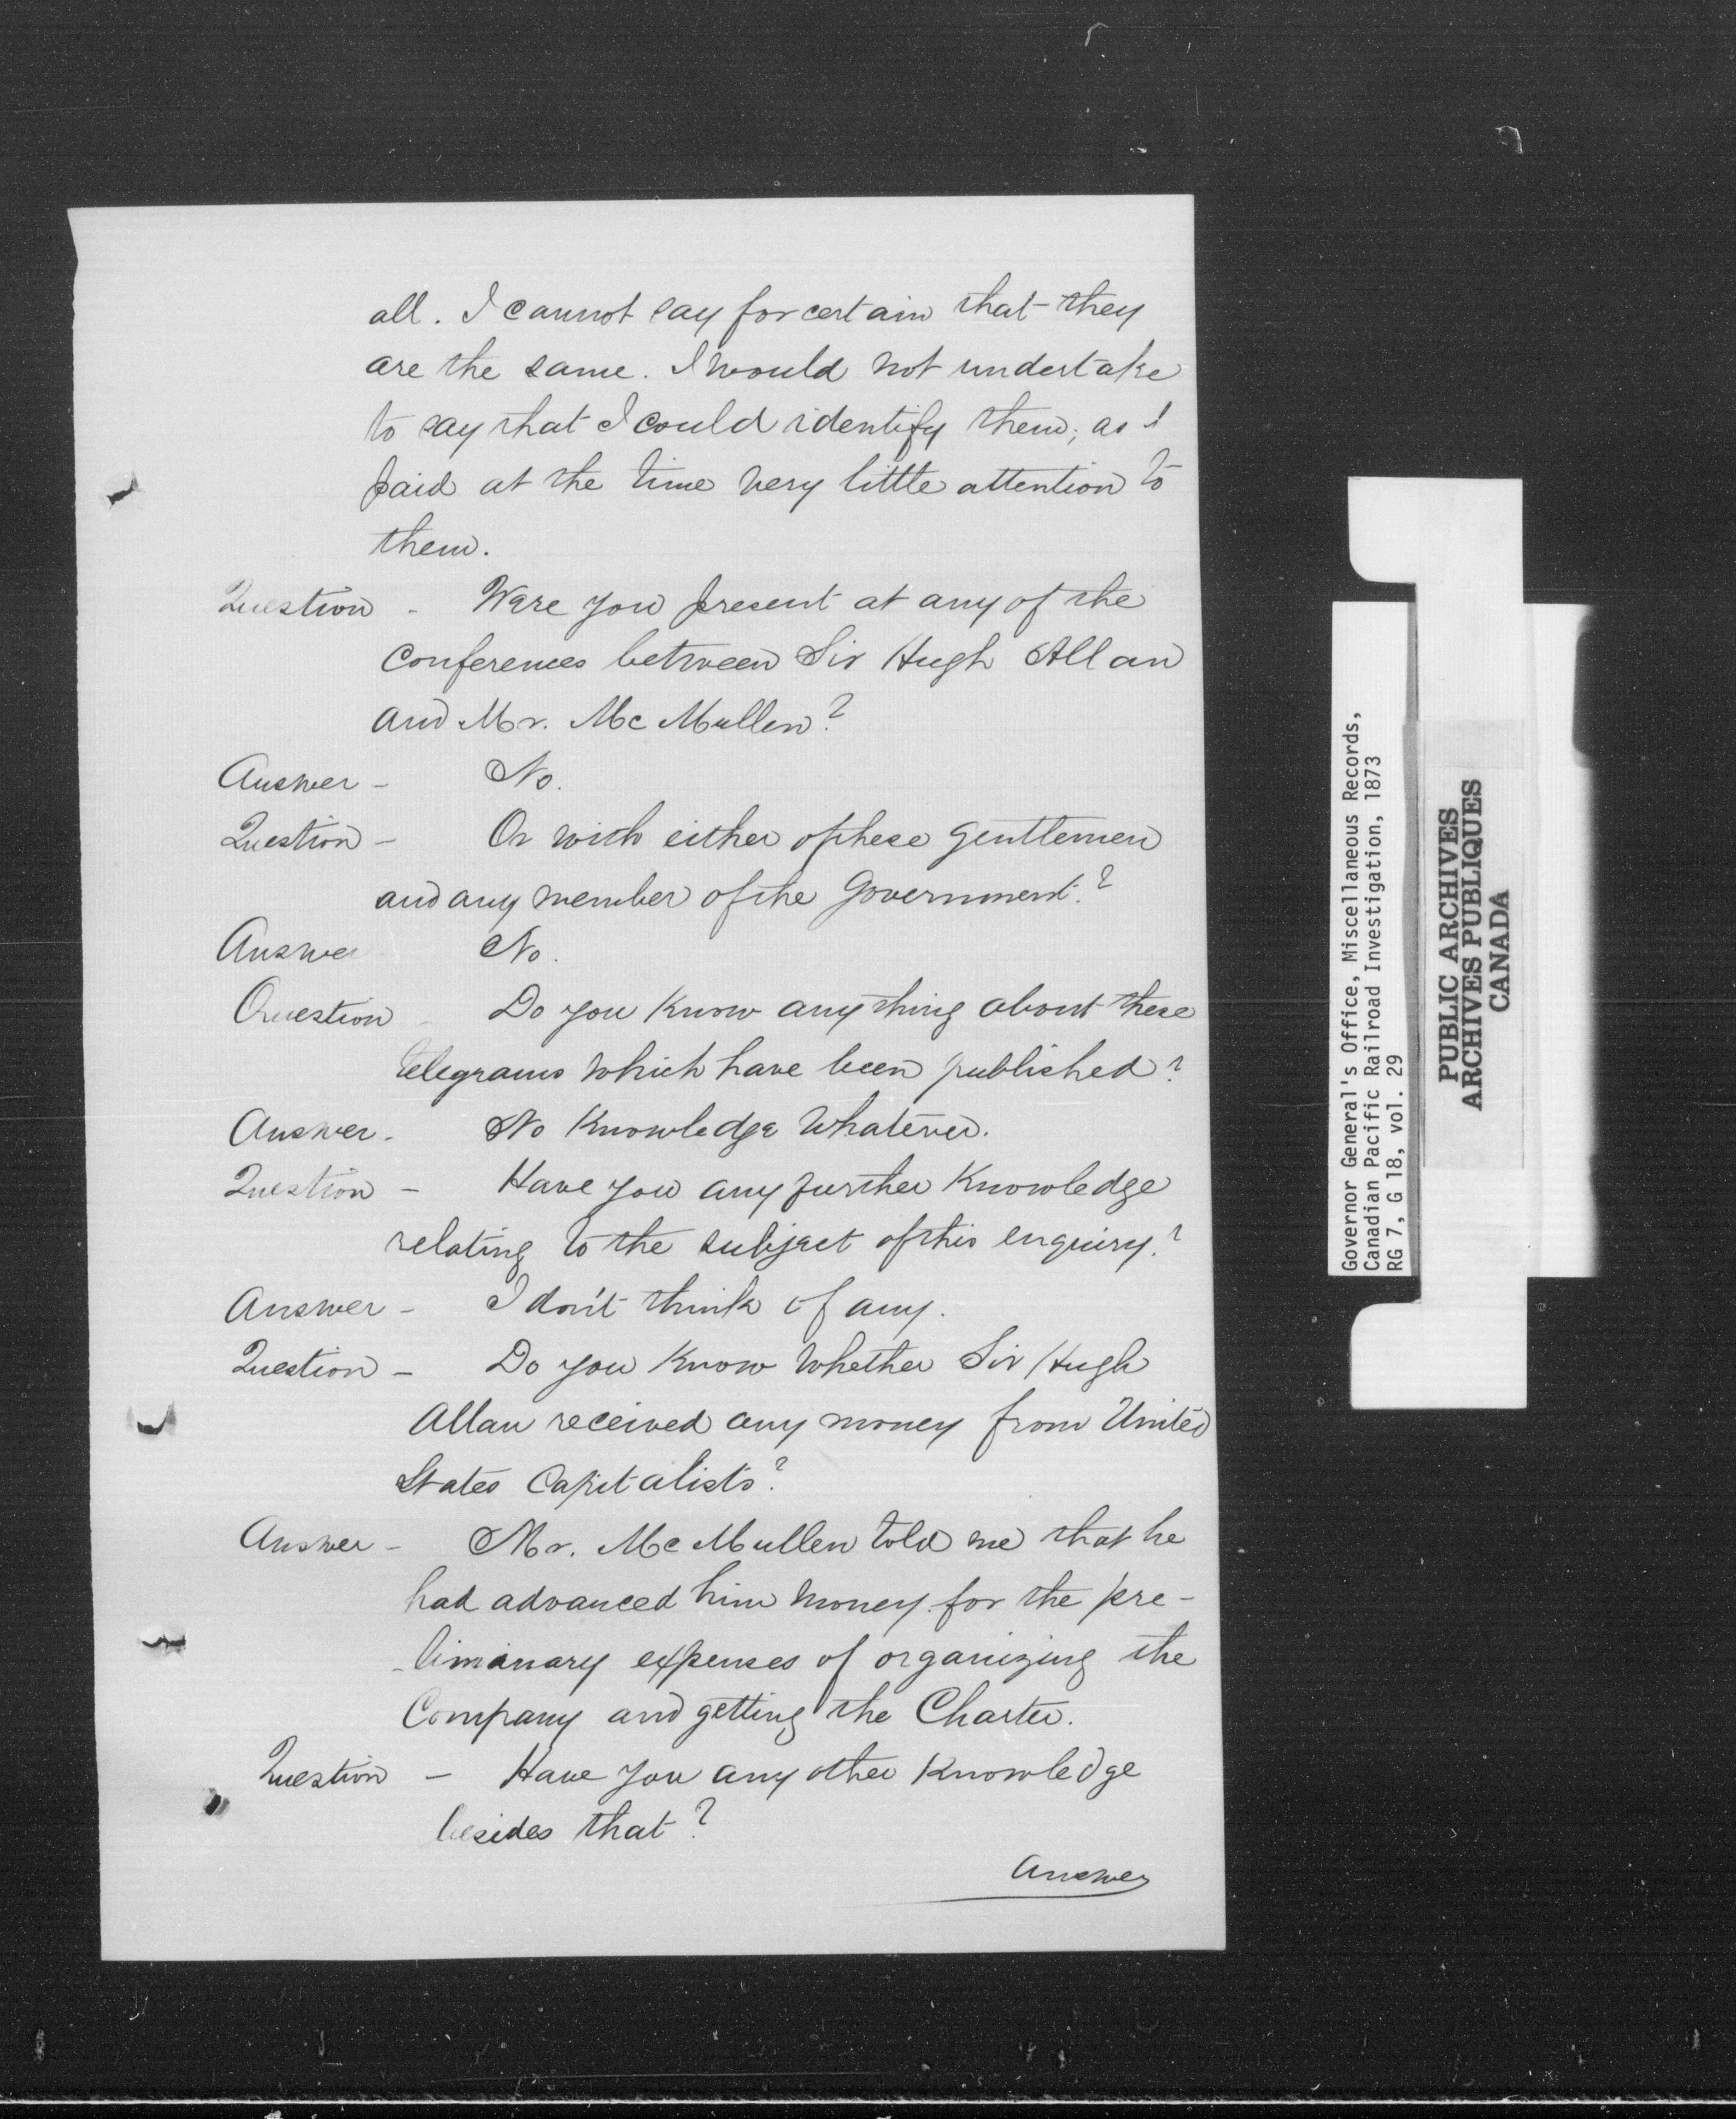 all. I cannot say for certain that they
are the same. I would not undertake
to say that I could identify them; as I
paid at the time very little attention to
them.
Question - Were you present at any of the
Conferences between Sir Hugh Allan
and Mr. McMullen?
Answer - No.
Question - Or with either of these gentlemen
and any member of the Government?
Answer No.
Question - Do you know anything about these
telegrams which have been published?
Answer - No knowledge whatever.
Question - Have you any further knowledge
relating to the subject of this enquiry?
Answer - I don't think of any.
Question - Do you know whether Sir Hugh
Allan received any money from United
States Capitalists?
Answer - Mr. McMullen told me that he
had advanced him money for the pre-
-limanary expenses of organizing the
Company and getting the Charter.
Question - Have you any other knowledge
besides that?
Answer
Governor General's Office, Miscellaneous Records,
Canadian Pacific Railroad Investigation, 1873
RG 7, G 18, vol. 29
PUBLIC ARCHIVES
ARCHIVES PUBLIQUES
CANADA